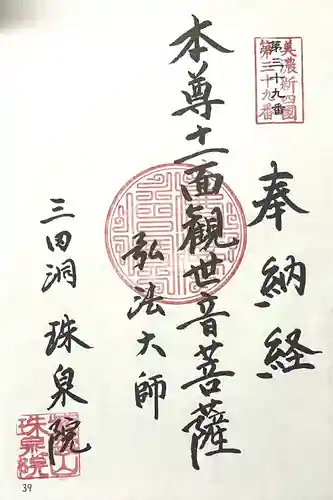 美濃新四國
第三十九番
第三十九番
奉納経
本尊十一面觀世音菩薩
弘法大師
三田洞 珠泉院
珠泉院
39